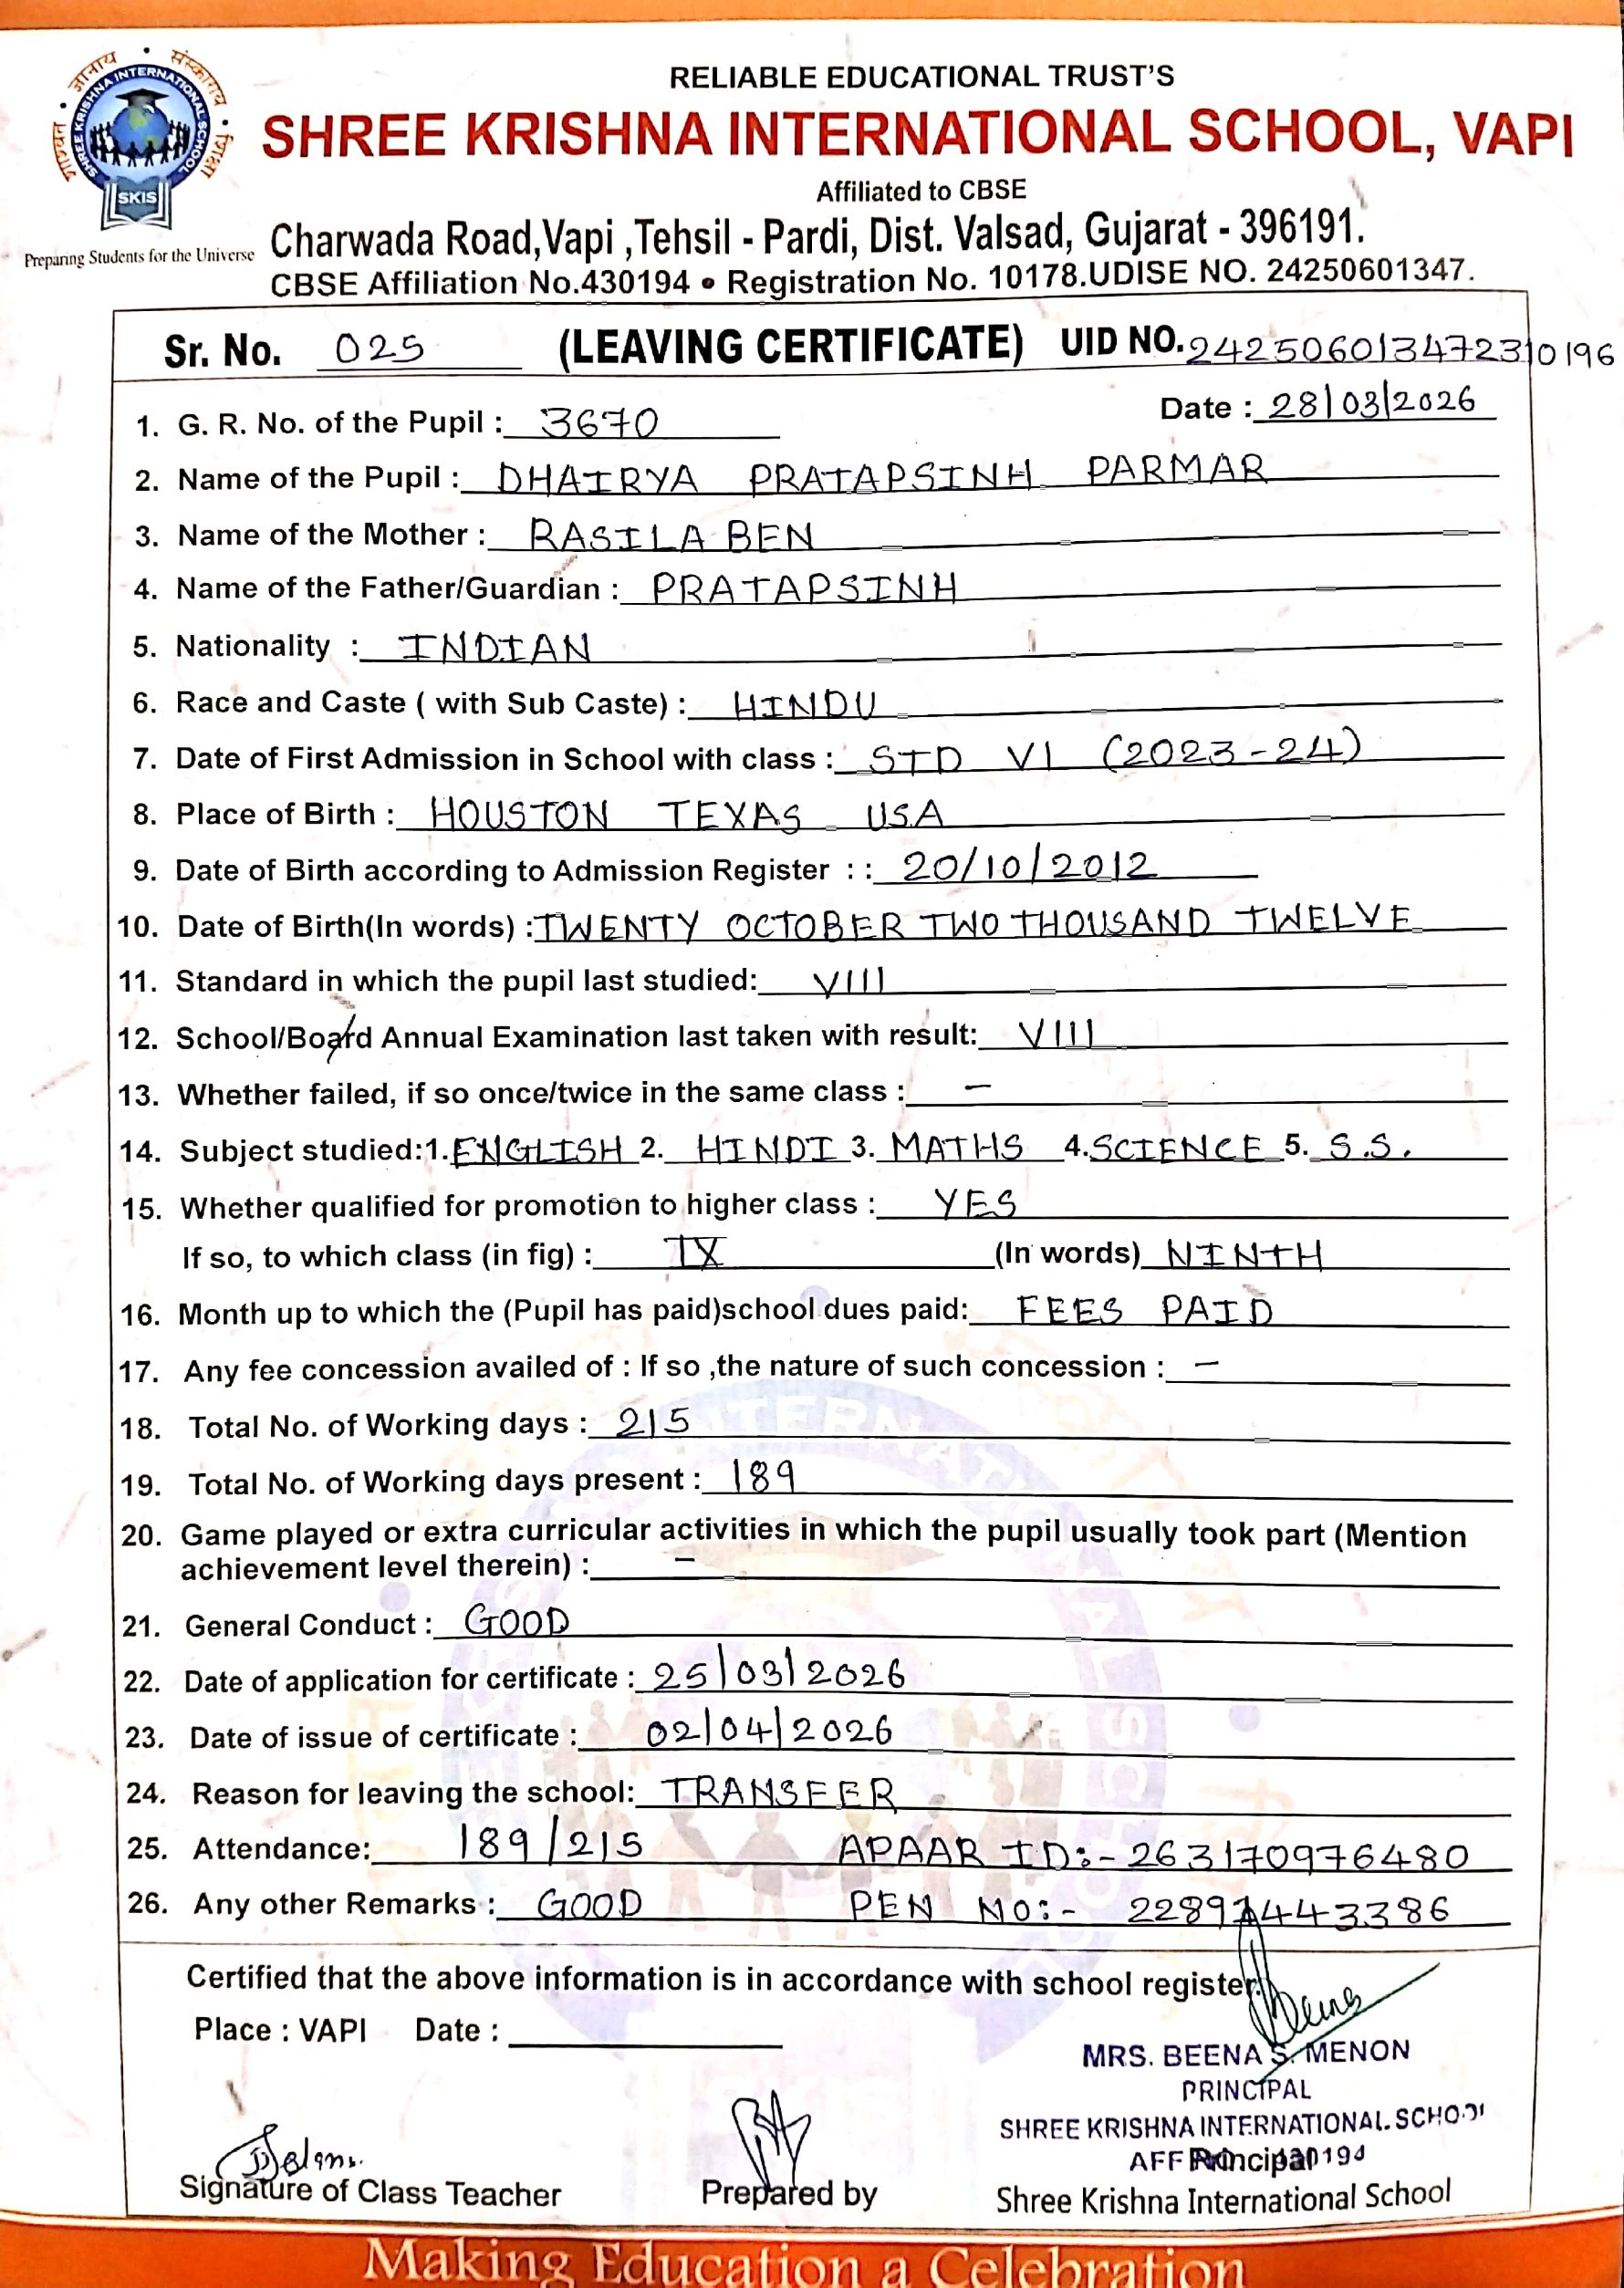 RELIABLE EDUCATIONAL TRUST'S
SHREE KRISHNA INTERNATIONAL SCHOOL, VAPI
Affiliated to CBSE
SHREE KRISHNA INTERNATIONAL SCHOOL
SKIS
Preparing Students for the Universe
Charwada Road,Vapi ,Tehsil - Pardi, Dist. Valsad, Gujarat - 396191.
CBSE Affiliation No.430194 • Registration No. 10178.UDISE NO. 24250601347.
Sr. No. 025 (LEAVING CERTIFICATE) UID NO. 242506013472310196
Date : 28/03/2026
1. G. R. No. of the Pupil : 3670
2. Name of the Pupil : DHAIRYA PRATAPSINH PARMAR
3. Name of the Mother : RASILABEN
4. Name of the Father/Guardian : PRATAPSINH
5. Nationality : INDIAN
6. Race and Caste ( with Sub Caste) : HINDU
7. Date of First Admission in School with class : STD VI (2023-24)
8. Place of Birth : HOUSTON TEXAS USA
9. Date of Birth according to Admission Register : : 20/10/2012
10. Date of Birth(In words) : TWENTY OCTOBER TWO THOUSAND TWELVE
11. Standard in which the pupil last studied: VIII
12. School/Board Annual Examination last taken with result: VIII
13. Whether failed, if so once/twice in the same class : –
14. Subject studied:1. ENGLISH 2. HINDI 3. MATHS 4. SCIENCE 5. S.S.
15. Whether qualified for promotion to higher class : YES
If so, to which class (in fig) : IX (In words) NINTH
16. Month up to which the (Pupil has paid)school dues paid: FEES PAID
17. Any fee concession availed of : If so ,the nature of such concession : –
18. Total No. of Working days : 215
19. Total No. of Working days present : 189
20. Game played or extra curricular activities in which the pupil usually took part (Mention
achievement level therein) : –
21. General Conduct : GOOD
22. Date of application for certificate : 25/03/2026
23. Date of issue of certificate : 02/04/2026
24. Reason for leaving the school: TRANSFER
25. Attendance: 189/215 APAAR ID:- 263170976480
26. Any other Remarks : GOOD PEN NO:-
Certified that the above information is in accordance with school register.
Place : VAPI Date :
MRS. BEENA S. MENON
PRINCIPAL
SHREE KRISHNA INTERNATIONAL SCHOOL
AFF
Principal
Signature of Class Teacher Prepared by Shree Krishna International School
Making Education a Celebration